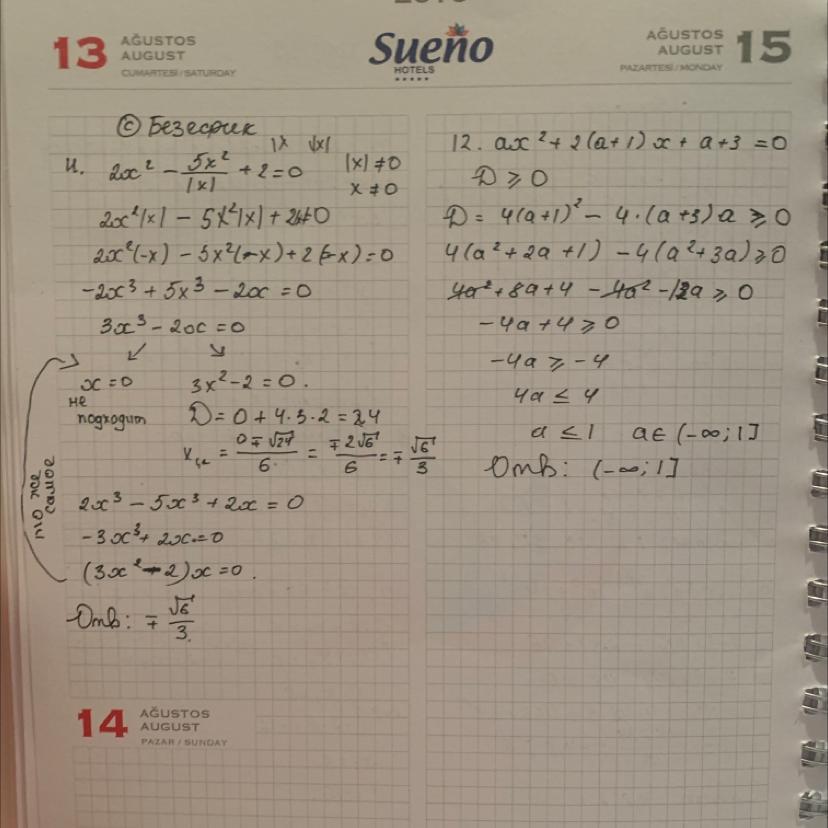 13 AĞUSTOS
AUGUST
CUMARTESİ / SATURDAY
Sueño
HOTELS
AĞUSTOS 15
AUGUST
PAZARTESİ / MONDAY
© Безесрик
11. 2x² - 5x²/|x| + 2 = 0 |x| ≠ 0
x ≠ 0
2x²|x| - 5x²|x| + 2|x| = 0
2x²(-x) - 5x²(-x) + 2(-x) = 0
-2x³ + 5x³ - 2x = 0
3x³ - 2x = 0
↙ ↘
x = 0 3x² - 2 = 0.
не
подходит
D = 0 + 4·3·2 = 24
x₁,₂ = (0 ∓ √24)/6 = ∓2√6/6 = ∓√6/3
то же
самое
2x³ - 5x³ + 2x = 0
-3x³ + 2x = 0
(3x² - 2)x = 0.
Отв: ∓ √6/3.
12. ax² + 2(a+1)x + a+3 = 0
D ≥ 0
D = 4(a+1)² - 4·(a+3)a ≥ 0
4(a² + 2a + 1) - 4(a² + 3a) ≥ 0
4a² + 8a + 4 - 4a² - 12a ≥ 0
-4a + 4 ≥ 0
-4a ≥ -4
4a ≤ 4
a ≤ 1 a ∈ (-∞; 1]
Отв: (-∞; 1]
14 AĞUSTOS
AUGUST
PAZAR / SUNDAY